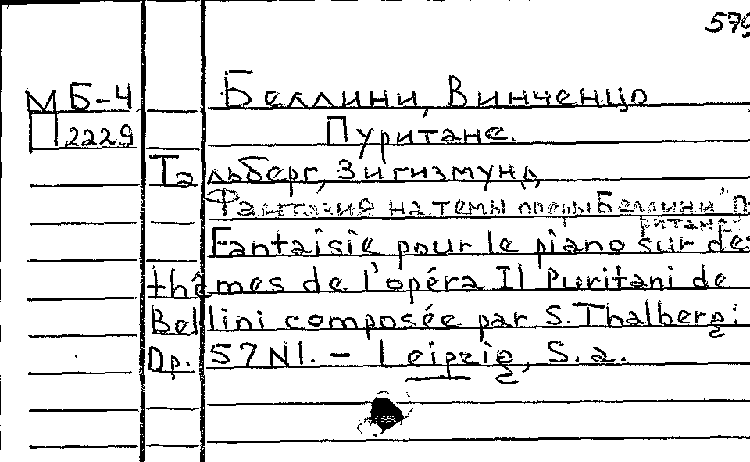 579
М Б-4
П 2229
Беллини, Винченцо
Пуритане.
Тальберг, Зигизмунд
Фантазия на темы оперы Беллини "Пуритане"
Fantaisie pour le piano sur des
thêmes de l'opéra Il Puritani de
Bellini composée par S. Thalberg.
Op. 57 N1. - Leipzig, S. a.